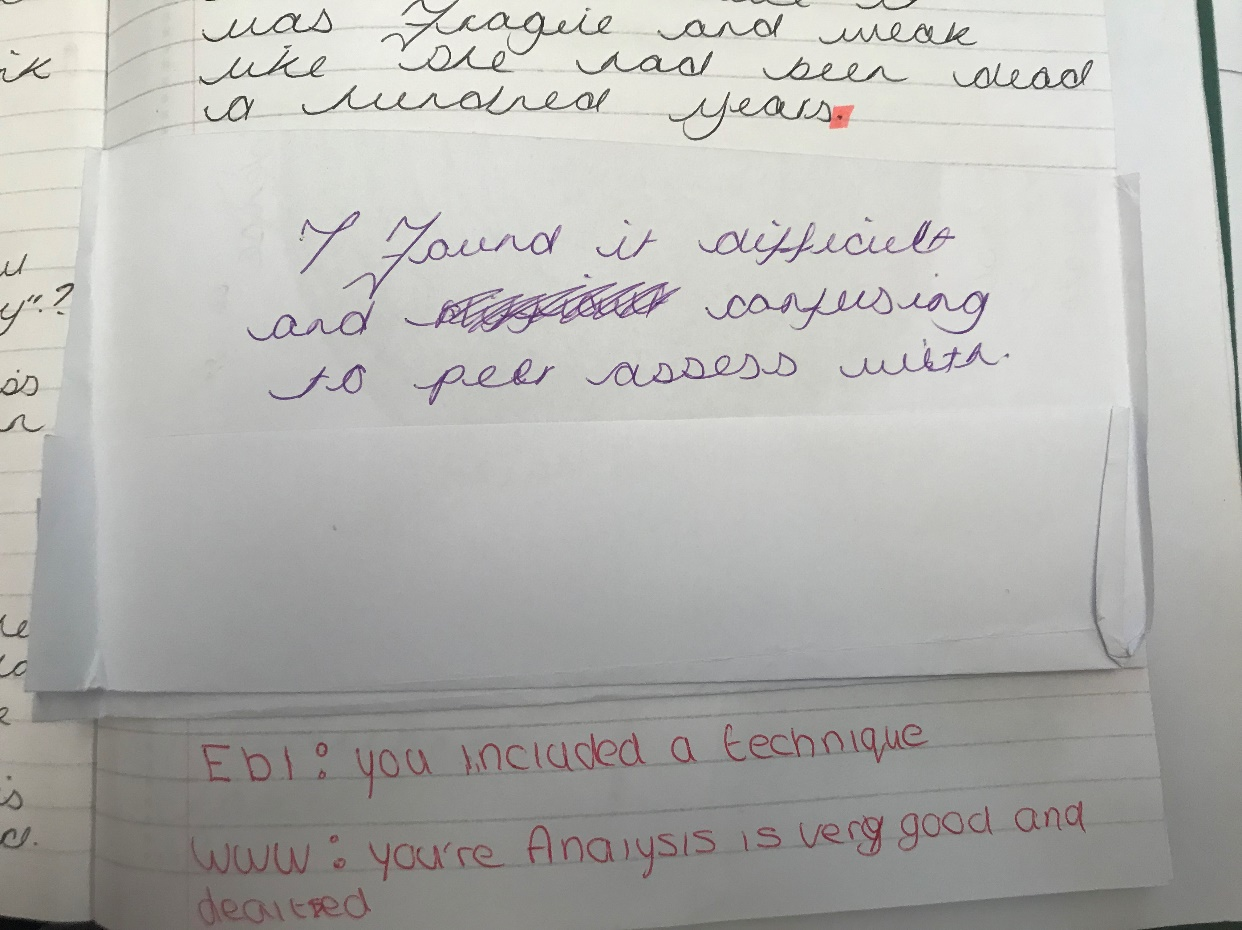 was fragile and weak
like she had been dead
a hundred years.
I found it difficult
and confusing
to peer assess with.
EbI: you included a technique
WWW: you're Analysis is very good and